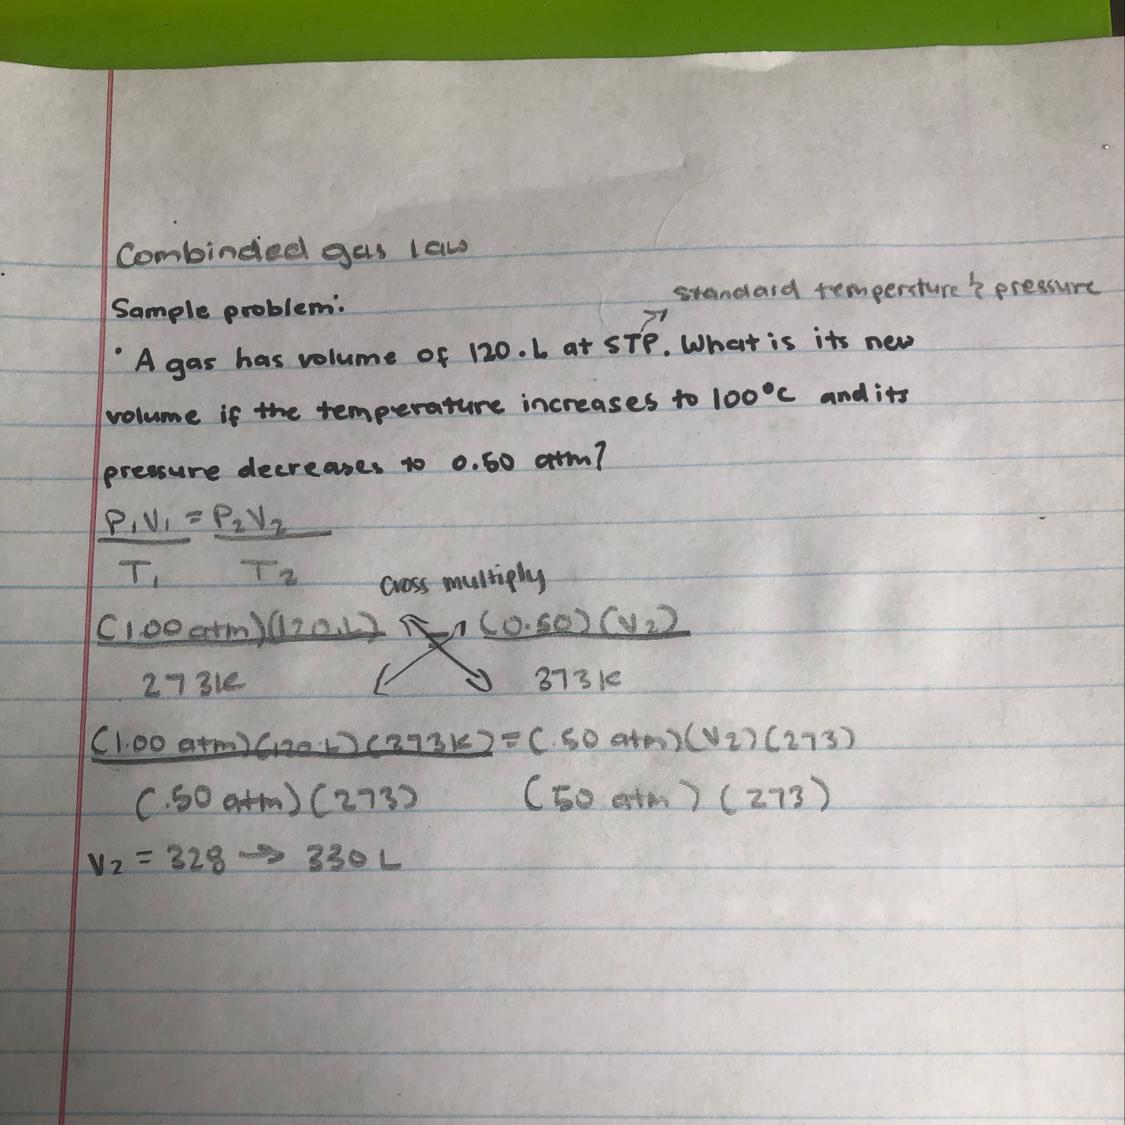 Combinded gas law
standard temperature & pressure
Sample problem:
• A gas has volume of 120.L at STP. What is its new
volume if the temperature increases to 100°C and its
pressure decreases to 0.50 atm?
P₁V₁ = P₂V₂
T₁ T₂
cross multiply
(1.00 atm)(120.L) (0.50)(V2)
273K 373K
(1.00 atm)(120.L)(373K) = (.50 atm)(V2)(273)
(.50 atm)(273) (50 atm)(273)
V2 = 328 → 330 L